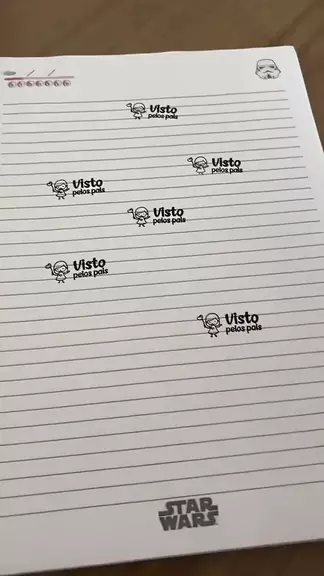 Visto
pelos pais
Visto
pelos pais
Visto
pelos pais
Visto
pelos pais
Visto
pelos pais
Visto
pelos pais
STAR
WARS